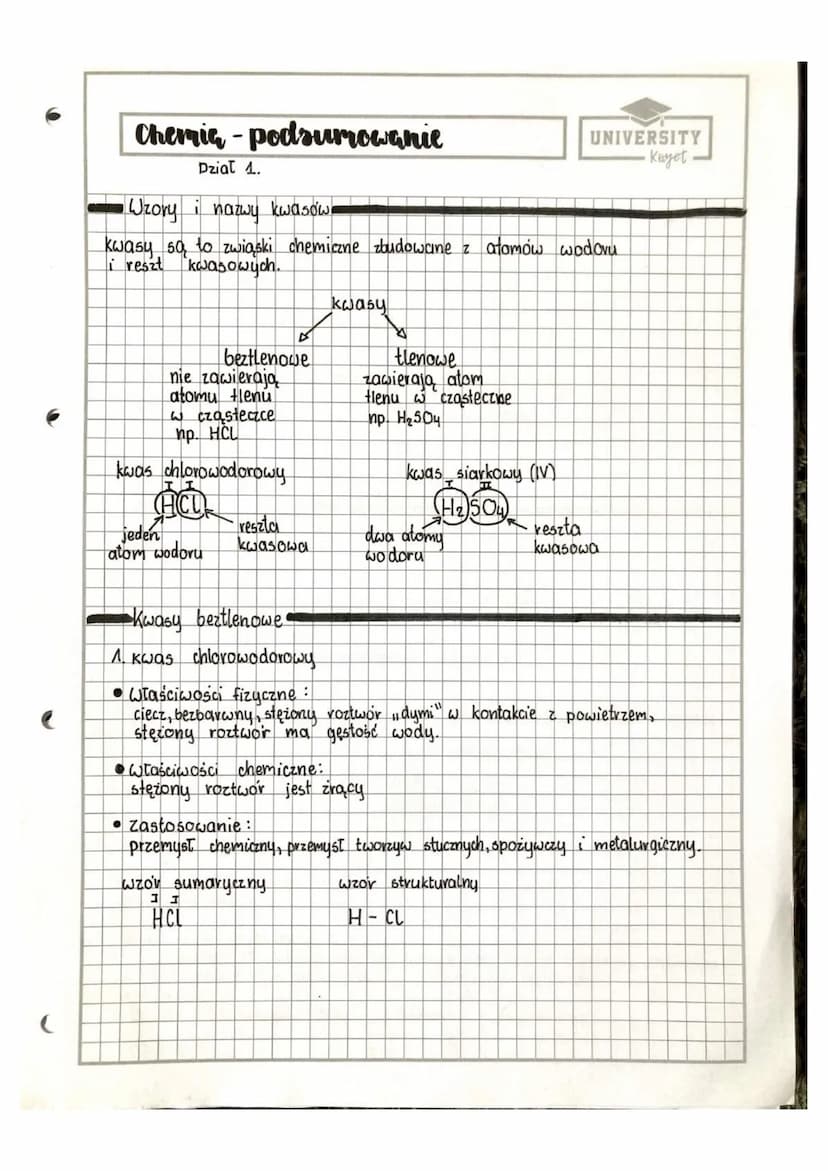 Chemia - podsumowanie
UNIVERSITY
Kayet
Dział 1.
Wzory i nazwy kwasów
kwasy są to związki chemiczne zbudowane z atomów wodoru
i reszt kwasowych.
kwasy
beztlenowe
nie zawierają
atomu tlenu
w cząsteczce
np. HCl
tlenowe
zawierają atom
tlenu w cząsteczne
np. H₂SO₄
kwas chlorowodorowy
I I
HCl
jeden
atom wodoru
reszta
kwasowa
kwas siarkowy (IV)
I II
H₂SO₄
dwa atomy
wodoru
reszta
kwasowa
Kwasy beztlenowe
1. kwas chlorowodorowy
• Właściwości fizyczne:
ciecz, bezbarwny, stężony roztwór „dymi" w kontakcie z powietrzem,
stężony roztwór ma gęstość wody.
• Właściwości chemiczne:
stężony roztwór jest żrący
• zastosowanie:
przemysł chemiczny, przemysł tworzyw stucznych, spożywczy i metalurgiczny.
wzór sumaryczny
I I
HCl
wzór strukturalny
H - Cl